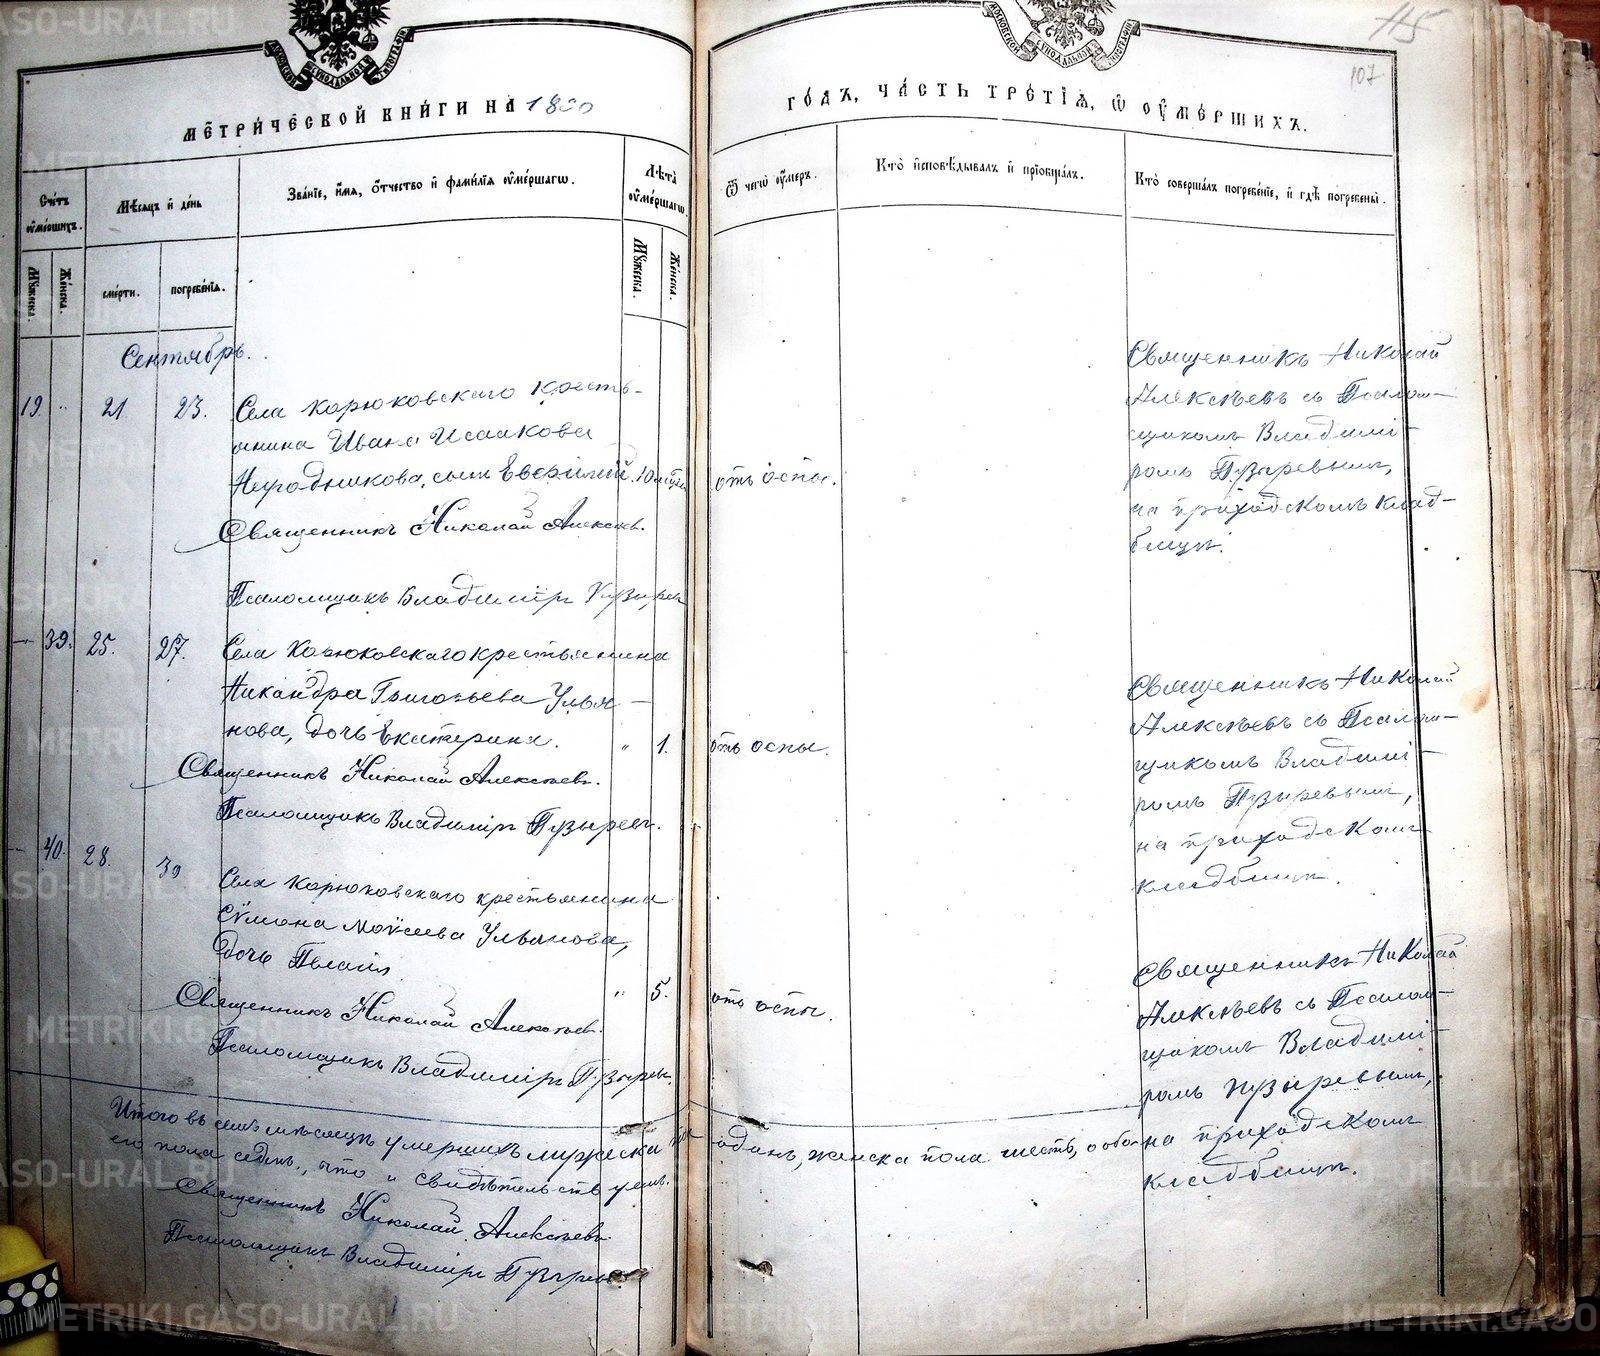 МЕТРИЧЕСКОЙ КНИГИ НА 18
ГОДЪ, ЧАСТЬ ТРЕТІЯ, Ѿ ОУМЕРШИХЪ.
МОСКОВСКОЙ СѴНОДАЛЬНОЙ ТИПОГРАФІИ
107
Счетъ оумершихъ.
Мѣсяцъ и день
Званіе, имя, отчество и фамилія оумершагѡ.
Лѣта оумершагѡ.
Ѿ чегѡ оумеръ.
Кто исповѣдывалъ и пріобщалъ.
Кто совершалъ погребеніе, и гдѣ погребены.
Мужеска.
Женска.
смерти.
погребенія.
Мужеска.
Женска.
Сентябрь.
19. " 21. 23. Села Корюковскаго кресть-
янина Ивана Исаакова
сынъ Евѳимій. 10 отъ оспы.
Священникъ Николай Алексѣевъ.
Псаломщикъ Владиміръ Пузыревъ
Священникъ Николай
Алексѣевъ съ Псалом-
щикомъ Владимі-
ромъ Пузыревымъ,
на приходскомъ клад-
бищѣ.
— 39. 25. 27. Села Корюковскаго крестьянина
Никандра Григорьева Улья-
нова, дочь Екатерина. " 1. отъ оспы.
Священникъ Николай Алексѣевъ.
Псаломщикъ Владиміръ Пузыревъ.
Священникъ Николай
Алексѣевъ съ Псалом-
щикомъ Владимі-
ромъ Пузыревымъ,
на приходскомъ
кладбищѣ.
— 40. 28. 30 Села Корюковскаго крестьянина
Сѵмеона Моѵсеева Ульянова,
дочь " 5. отъ оспы.
Священникъ Николай Алексѣевъ.
Псаломщикъ Владиміръ Пузыревъ.
Священникъ Николай
Алексѣевъ съ Псалом-
щикомъ Владимі-
ромъ Пузыревымъ,
на приходскомъ
кладбищѣ.
Итого въ семъ мѣсяцѣ умершихъ мужеска пола одинъ, женска пола шесть, обо-
его пола седмь, что и свидѣтельствуемъ.
Священникъ Николай Алексѣевъ.
Псаломщикъ Владиміръ Пузыревъ
METRIKI.GASO-URAL.RU